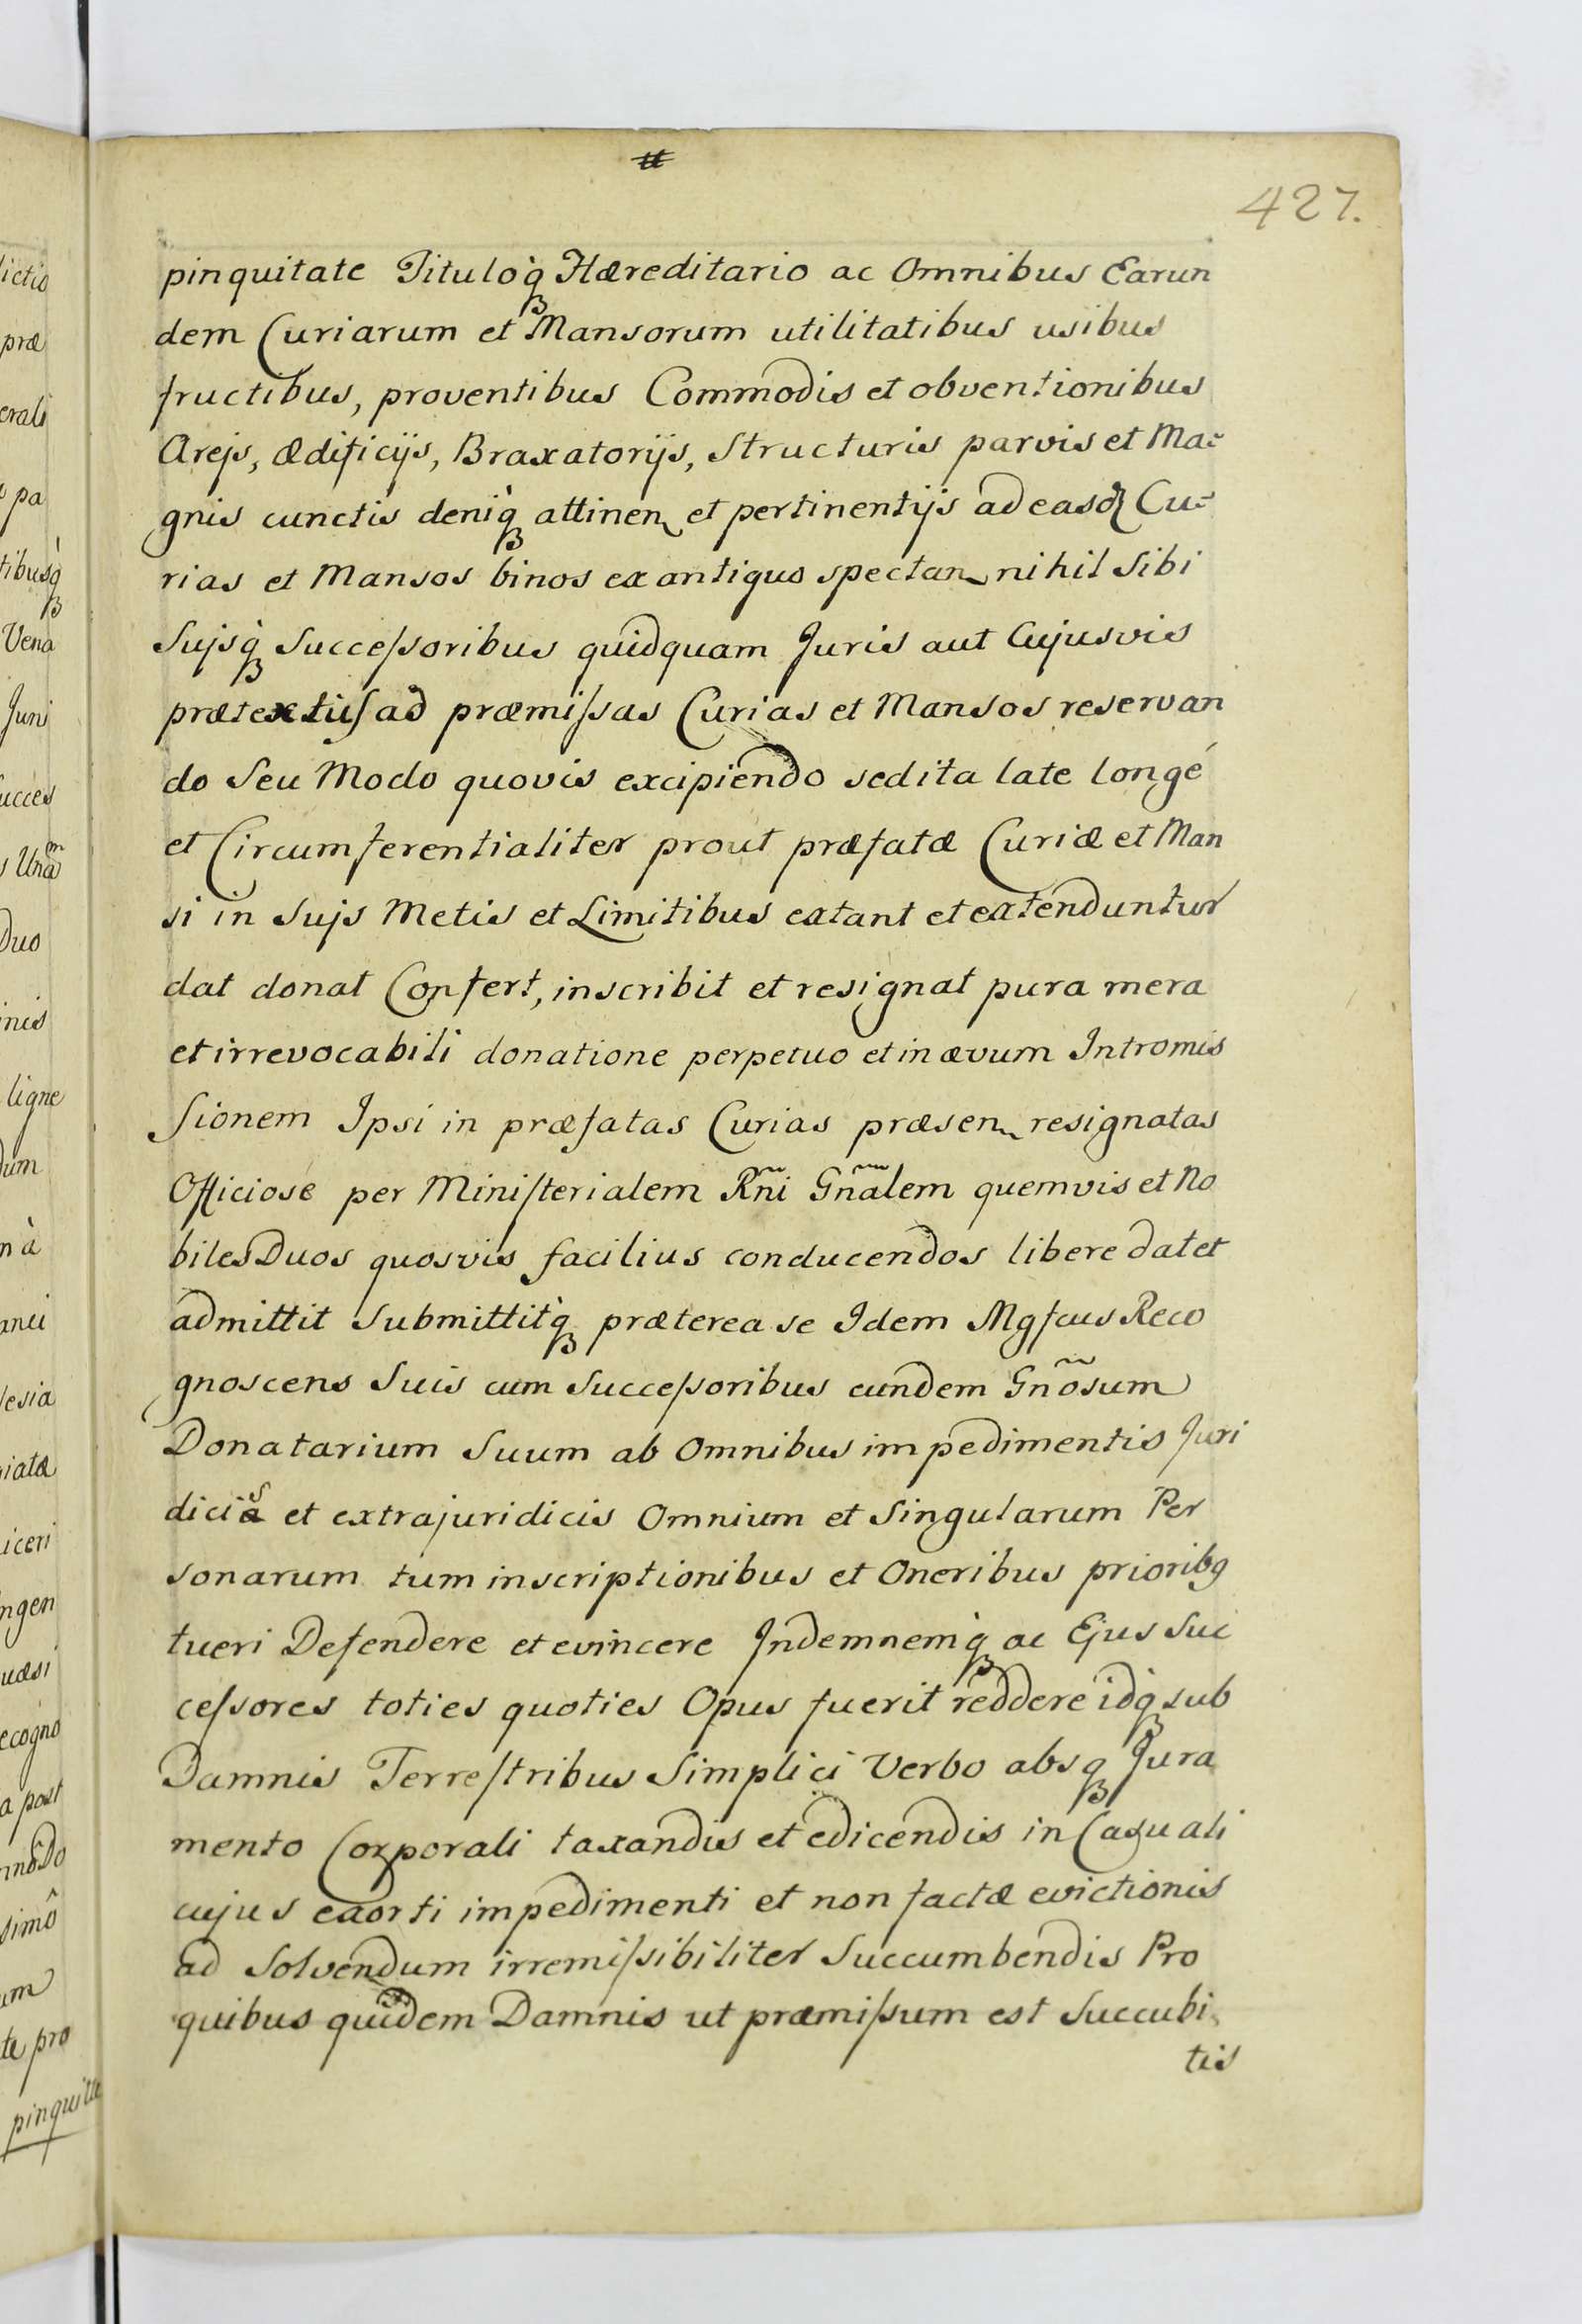 427.
pinquitate Tituloq̀ꝫ Hæreditario ac Omnibus Earun
dem Curiarum et Mansorum utilitatibus usibus
fructibus, proventibus Commodis et obventionibus
Arejs, ædificijs, Braxatorijs, Structuris parvis et Ma⸗
gnis cunctis deniq̀ꝫ attinen et pertinentijs ad easd Cu⸗
rias et Mansos binos ex antiquo spectan nihil Sibi
Sujsq̀ꝫ Succeſsoribus quidquam Juris aut Cujusvis
prætextuſ ad præmiſsas Curias et Mansos reservan
do Seu Modo quovis excipiendo sed ita late longé
et Circumferentialiter prout præfatæ Curiæ et Man
si in Sujs Metis et Limitibus extant et extenduntur
dat donat Confert, inscribit et resignat pura mera
et irrevocabili donatione perpetuo et in ævum Intromis
ſionem Ipsi in præfatas Curias præsen resignatas
Officiosé per Miniſterialem Rñi Gñalem quemvis et No
biles Duos quosvis facilius conducendos libere dat et
admittit Submittitq̀ꝫ præterea se Idem Mgfcus Reco
gnoscens Suis cum Succeſsoribus eundem Gñosum
Donatarium Suum ab Omnibus impedimentis Juri
dicis et extrajuridicis Omnium et Singularum Per
sonarum tum inscriptionibus et Oneribus prioribꝯ
tueri Defendere et evincere Indemnemq̀ꝫ ac Ejus Suc
ceſsores toties quoties Opus fuerit reddere idq̀ꝫ sub
Damnis Terreſtribus Simplici Verbo absqꝫ Jura
mento Corporali taxandis et edicendis in Casu ali
cujus exorti impedimenti et non factæ evictionis
ad Solvendum irremiſsibiliter Succumbendis Pro
quibus quidem Damnis ut præmiſsum est Succubi
tis